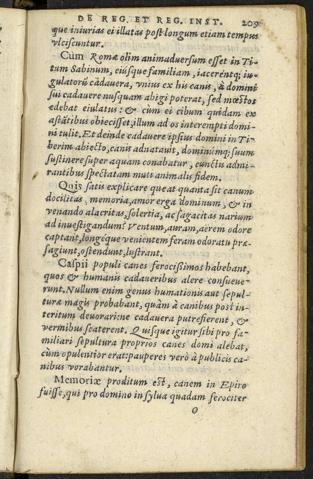 DE REG. ET REG. INST. 209
que iniurias ei illatas post longum etiam tempus
vlciscuntur.
Cùm Romæ olim animaduersum esset in Ti-
tum Sabinum, eiúsque familiam, iacerentq; iu-
gulatorũ cadauera, vnius ex his canis, à domini
sui cadauere nusquam abigi poterat, sed mœstos
edebat eiulatus: & cùm ei cibum quidam ex
astātibus obiecisset, illum ad os interempti domi-
ni tulit. Et deinde cadauere ipsius domini in Ti-
berim abiecto, canis adnatauit, dominúmq; suum
sustinere super aquam conabatur, cunctis admi-
rantibus spectatam muti animalis fidem.
Quis satis explicare queat quanta sit canum
docilitas, memoria, amor erga dominum, & in
venando alacritas, solertia, ac sagacitas narium
ad inuestigandum? Ventum, auram, aërem odore
captant, longéque venientem feram odoratu præ-
sagiunt, ostendunt, lustrant.
Caspii populi canes ferocissimos habebant,
quos & humanis cadaueribus alere consueue-
runt. Nullum enim genus humationis aut sepul-
turæ magis probabant, quàm à canibus post in-
teritum deuorari: ne cadauera putrefierent, &
vermibus scaterent. Quisque igitur sibi pro fa-
miliari sepultura proprios canes domi alebat,
cùm opulentior erat: pauperes verò à publicis ca-
nibus vorabantur.
Memoriæ proditum est, canem in Epiro
fuisse, qui pro domino in sylua quadam ferociter
O